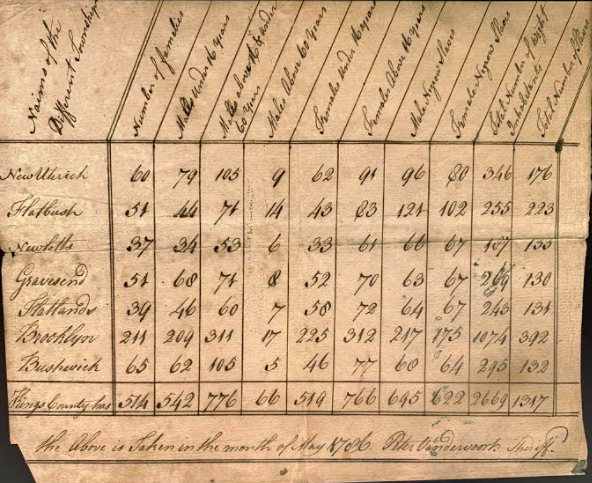 Names of the Different Townships
Number of families
Males Under 16 years
Males above 16 & under 60 years
Males Above 60 years
Females Under 16 years
Females Above 16 years
Male Negroe Slaves
Female Negroe Slaves
Total Number of Inhabitants
Total Number of Slaves
New Utrich 60 79 105 9 62 91 96 80 346 176
Flatbush 51 44 71 14 43 83 121 102 255 223
Newlotts 37 34 53 6 33 61 66 67 187 133
Gravesend 51 68 71 8 52 70 63 67 269 130
Flatlands 39 46 60 7 58 72 64 67 243 131
Brooklyn 211 209 311 17 225 312 217 175 1074 392
Bushwick 65 62 105 5 46 77 68 64 295 132
Kings County has 514 542 776 66 519 766 695 622 2669 1317
the Above is Taken in the month of May 1786 Peter Vandervoort Sheriff